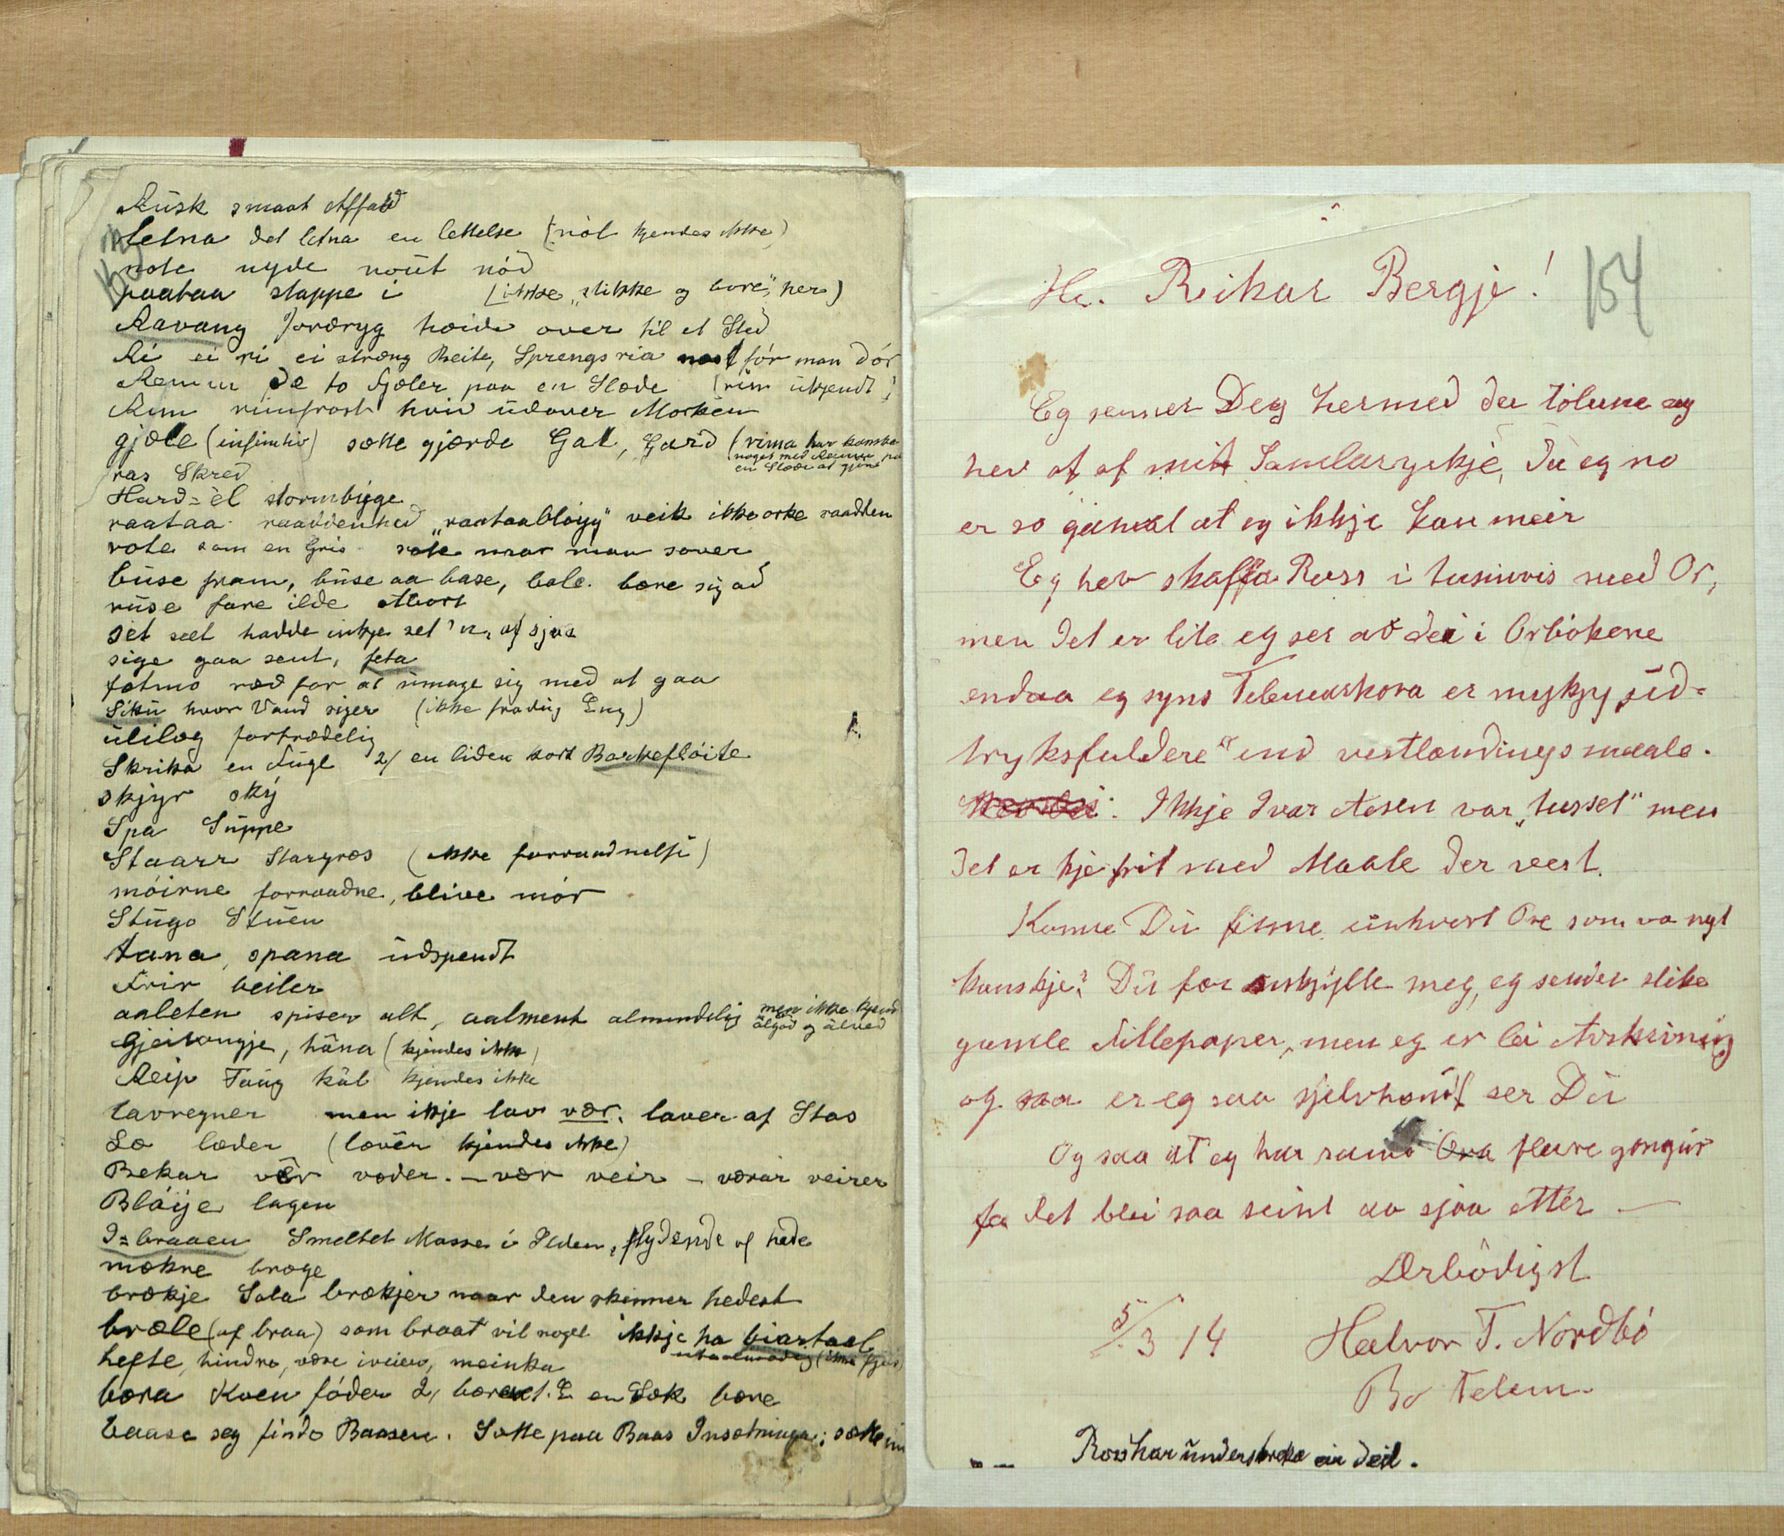 Rusk smaat Affald
letna det letna en lettelse (nòt kjendes ikke)
note nyde nout nód
paataa stappe i (ikke „slikke og bore", her)
Aavang Jordryg hoide over til et Sted
Ri ei ri ei stræng Beite, Sprengs ria nast fór man dór
Remm de to Fjøler paa en Slæde (rim ukjendt)
Rim rimfrost hvid udover Marken
gjæle (infinitiv) sætte gjærde Gal, Gard (rima har kanske
noget med Remme paa
en Slæde at gjøre
ras Skred
Hard=èl stormbyge
raataa raaddenhed „raataabløyg" veik ikke orke raadden
rote som en Gris naar man sover
buse fram, buse aa base, bale. bære sig ad
ruse fare ilde Abort
set seet hadde inkje set 'n, af sjaa
sige gaa sent, feta
fotmo ræd for at umage sig med at gaa
Siku hvor Vand siger (ikke fradig Eng)
ulilæg fortrædelig
Skrika en Fugl 2/ en liden kort Barkefløite
skjyr sky
Spa Suppe
Staarr Stargræs (ikke forraadnelse)
móirne forraadne, blive mór
Stugo Stuen
tana, spana udspendt
Frir beiler
aaleten spiser alt, aalment almindelig men ikke kjend
ålgod og ålved
Gjeitangje, håna (kjendes ikke)
Reip Taug kål kjendes ikke
lavregner men ikje lav vær. laver af Stas
Læ læder (læver kjendes ikke)
Bekar vêr væder. — vær veir — værar veirer
Blåije lagen
I=braaen Smeltet Masse i Ilden, flydende af hede
mækre bræge
brækje Sola brækjer naar den skinner hedest
bræle (af braa) som braat vil noget ikkje ha biartaal
utaalmodig (ikke
hefte, hindra, være iveien, meinka
bæra Koen føder 2/ bæra en Sæk bære
baase seg finde Baasen. Sætte paa Baas Insætninga; sætte in
Hr. Rikar Bergje! 154
Eg senner Deg hermed dei tolune eg
hev at af mitt Samlarykje, du eg no
er so gamal at eg ikkje kan meir
Eg hev skaffa Ross i tusinvis med Or,
men det er lite eg ser av dei i Orbokene
endaa eg syns Telemarkora er mykjy ud=
tryksfuldere end vestlandingsmaale.
Ikkje Ivar Aasen var „tusset" men
det er kje frit med Maale der vest.
Kunne Du finne inkvert Ore som va nyt
kanskje? Du fær unskjylle meg, eg sender slike
gamle Fillepaper, men eg er lei Avskriving
og saa er eg saa sjelvhendt ser Du
Og saa at eg har samo Ora fleire gongur
fe det blei saa seint aa sjaa etter —
Ærbödigst
5/3 14 Halvor T. Nordbö
Bø Telem.
Ross har understreka ein deil.